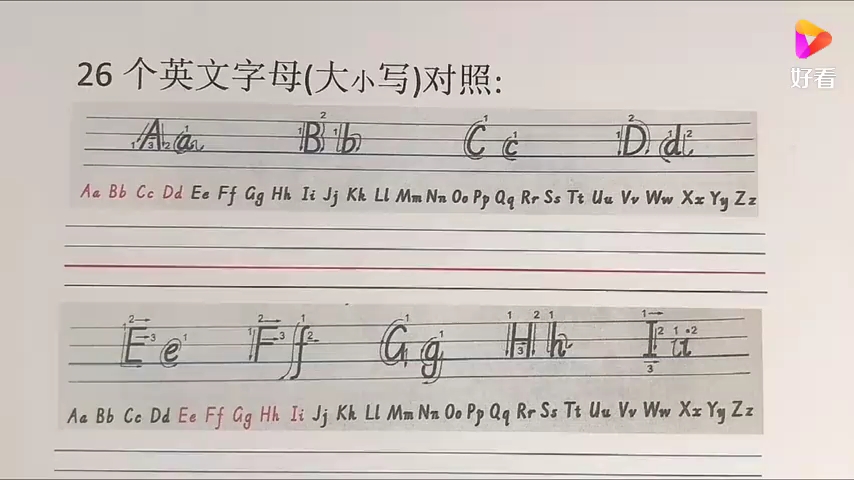 好看
26 个英文字母(大小写)对照:
Aa Bb Cc Dd
Aa Bb Cc Dd Ee Ff Gg Hh Ii Jj Kk Ll Mm Nn Oo Pp Qq Rr Ss Tt Uu Vv Ww Xx Yy Zz
Ee Ff Gg Hh Ii
Aa Bb Cc Dd Ee Ff Gg Hh Ii Jj Kk Ll Mm Nn Oo Pp Qq Rr Ss Tt Uu Vv Ww Xx Yy Zz